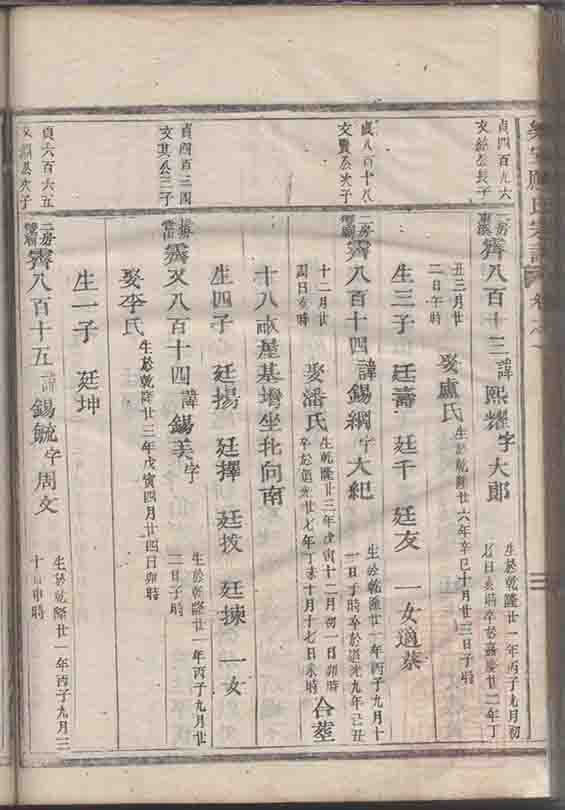 貞四百九六
文給公長子
二房
霽八百十三 諱熙耀字大郎
生於乾隆廿一年丙子九月初
七日亥時卒於嘉慶廿二年丁
丑三月廿
二日午時
娶盧氏 生於乾隆廿六年辛巳十月廿三日子時
生三子 廷壽 廷千 廷友 一女適蔡
貞八百十八
文賢公次子
二房
霽八百十四 諱錫綱字大紀
生於乾隆廿一年丙子九月十
一日子時卒於道光九年己丑
十二月廿
四日亥時
娶潘氏
生乾隆廿三年戊寅十二月初一日卯時
卒於道光廿七年丁未十月十七日未時
合塟
十八畝屋基增坐北向南
生四子 廷揚 廷擇 廷拔 廷揀 一女
貞四百三四
文其公三子
霽又八百十四 諱錫美字
生於乾隆廿一年丙子九月廿
二日子時
娶李氏 生於乾隆廿三年戊寅四月廿四日卯時
生一子 廷坤
貞六百六五
二房
霽八百十五 諱錫毓字周文
生於乾隆廿一年丙子九月三
十日申時